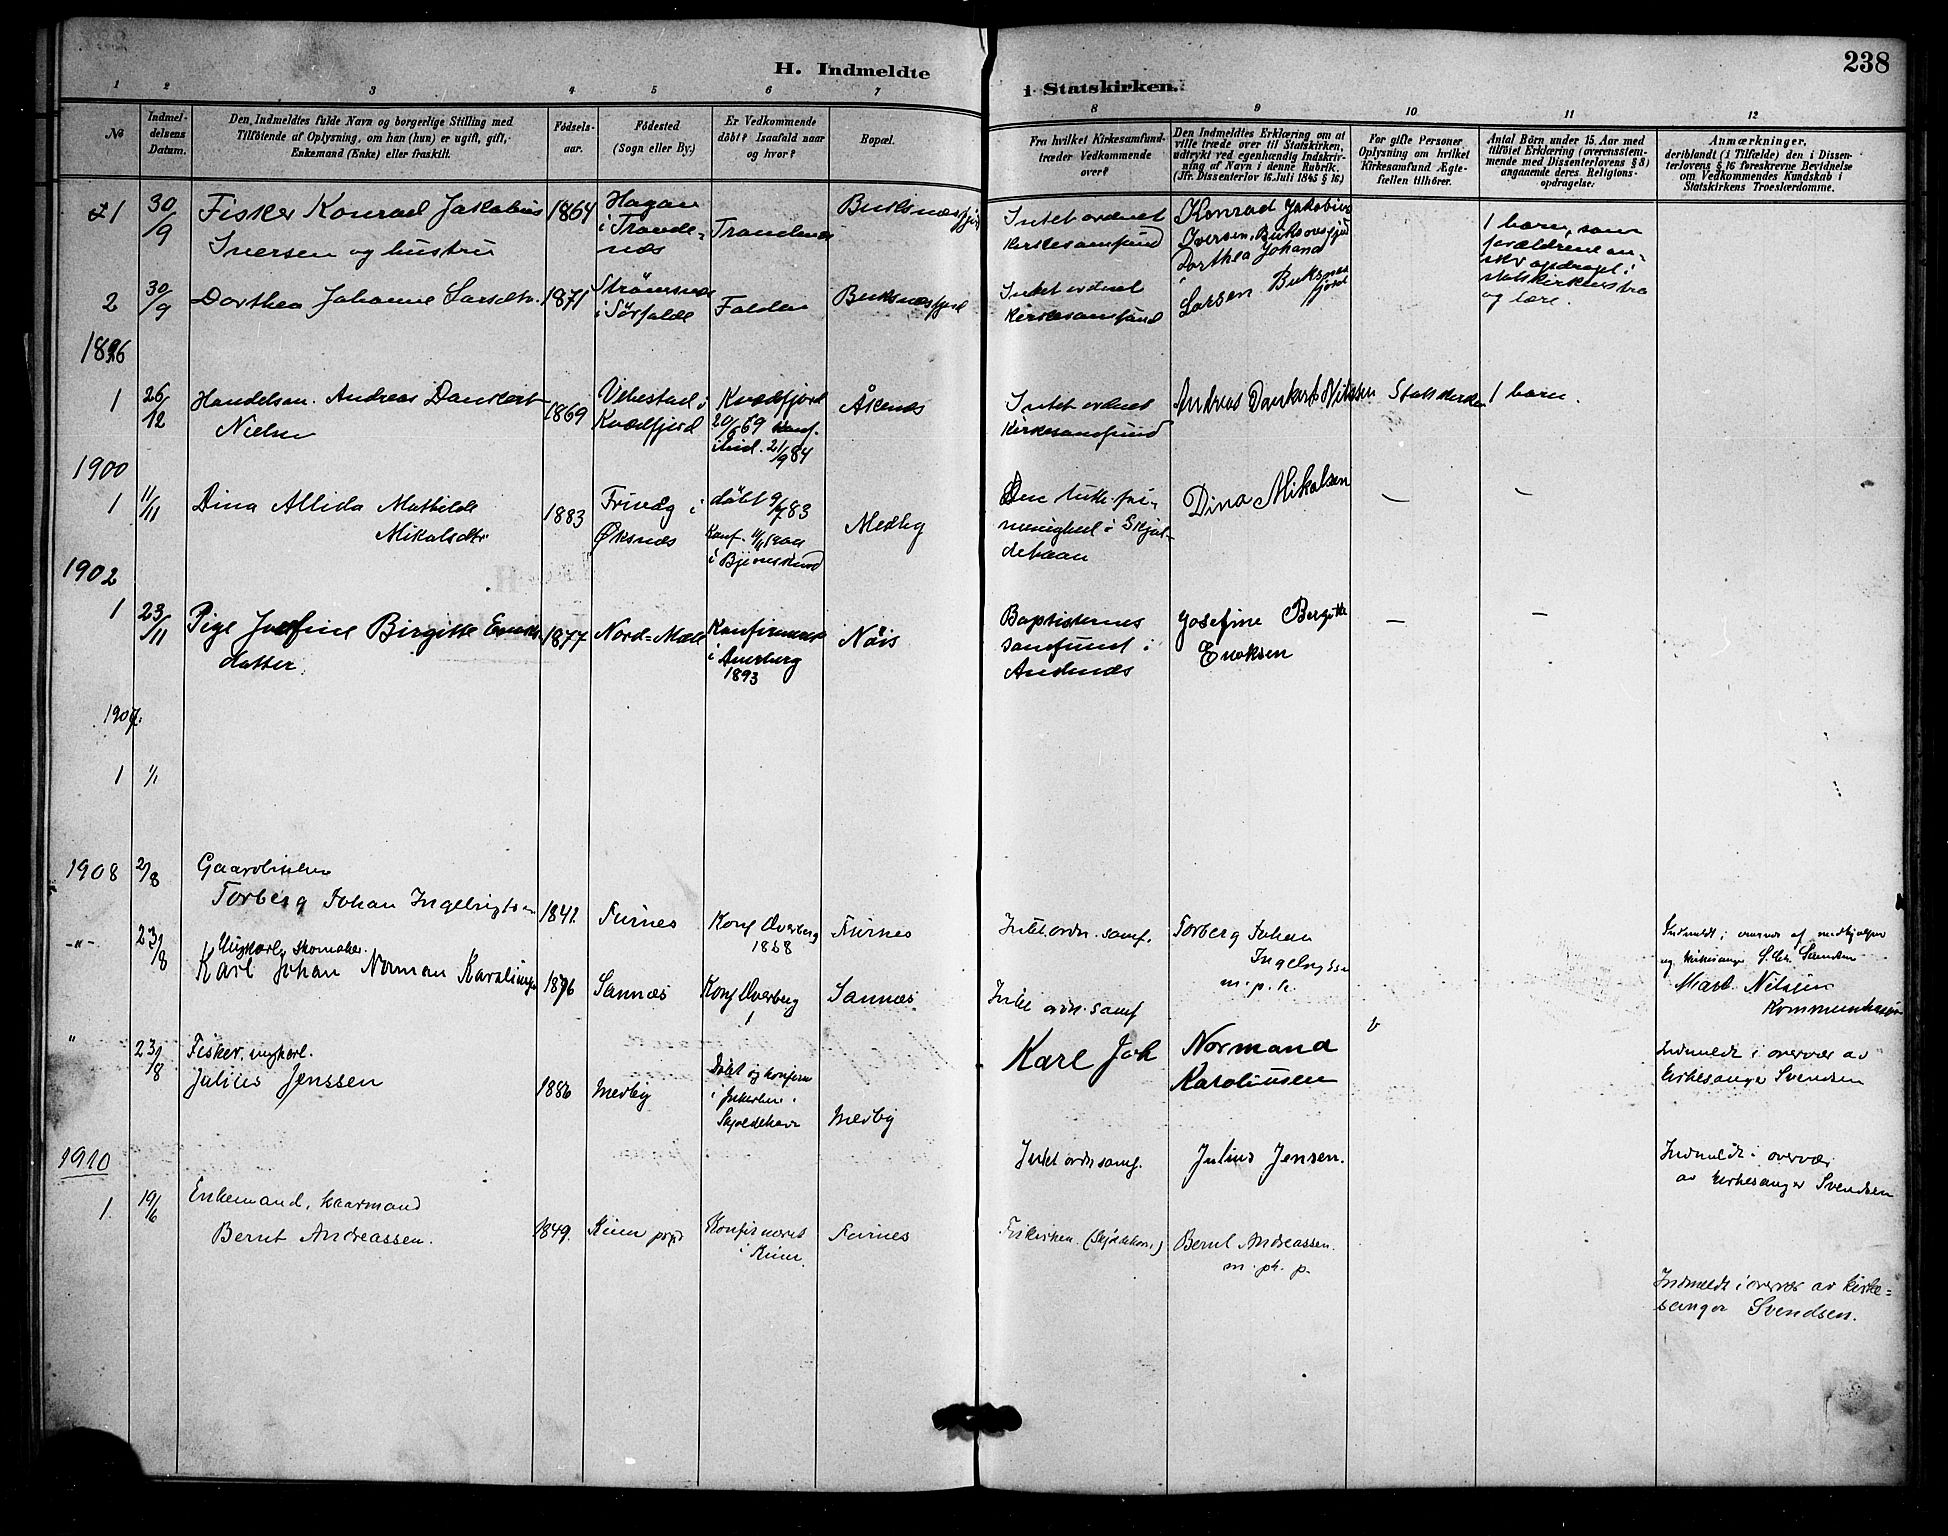 238
H. Indmeldte i Statskirken.
1 2 3 4 5 6 7 8 9 10 11 12
No
Indmel-
delsens
Datum.
Den Indmeldtes fulde Navn og borgerlige Stilling med
Tilføiende af Oplysning, om han (hun) er ugift, gift,
Enkemand (Enke) eller fraskilt.
Fødsels-
aar.
Fødested
(Sogn eller By.)
Er Vedkommende
døbt? Isaafald naar
og hvor?
Bopæl.
Fra hvilket Kirkesamfund
træder Vedkommende
over?
Den Indmeldtes Erklæring om at
ville træde over til Statskirken,
udtrykt ved egenhændig Indskriv-
ning af Navn i denne Rubrik.
(Jfr. Dissenterlov 16 Juli 1845 § 16.)
For gifte Personer
Oplysning om hvilket
Kirkesamfund Ægte-
fællen tilhører.
Antal Børn under 15 Aar med
tilføiet Erklæring (overensstem-
mende med Dissenterlovens § 8)
angaaende deres Religions-
opdragelse.
Anmærkninger,
deriblandt (i Tilfælde) den i Dissen-
terlovens § 16 foreskrevne Bevidnelse
om Vedkommendes Kundskab i
Statskirkens Troeslærdomme.
1
30/9
Fisker Konrad Jakobius
Iversen og hustru
1864
Hagan
i Tronde-
næs
Trondenæs
Buksnæsfjord
Intet ordnet
kirkesamfund
Konrad Jakobius
Iversen, Buksnesfjord
Dorthea Johand
1 barn, som
forældrene
opdraget i
statskirkens tro
og lære.
2
30/9
Dorthea Johanne Larsdtr.
1871
Strømsnes
i Sørfolde
Folden
Buksnæsfjord
Intet ordnet
kirkesamfund
Larsen Buksnes
fjord
1896
1
26/12
Handelsm. Andreas Dankert
Nielsen
1869
Vebestad i
Kvædfjord
Kvædfjord
20/6 69 konf.
21/9 84
Åknes
Intet ordnet
kirkesamfund
Andreas Dankert Nilssen
Statskirken
1 barn.
1900
1
11/11
Dina Allida Mathilde
Mikalsdtr.
1883
i
Øksnæs
døbt 9/7 83
Konf. 11/11 1900
i Bjørnskind
Medby
Den luth. fri-
menighed i Skjol-
dehavn
Dina Mikalsen
–
–
1902
1
23/11
Pige Josefine Birgitte Enoks
datter.
1877
Nord-Mæle
Konfirmeret
i Auerberg
1893
Nøis
Baptisternes
samfund i
Andenæs
Josefine Bergitte
Enoksen
–
–
1907.
1
1/1
1908
2/8
Gaardbruker
Torberg Johan Ingebrigtsen
1841
Furnes
Konf Dverberg
1858
Furnes
Intet ordn. samf.
Torberg Johan
Ingebrigtsen
m. p. p.
Indmeldt i overvær af medhjelper
og kirkesanger Svendsen
Mart. Nilsen
-"-
23/8
Ungkarl, skomaker.
Karl Johan Norman Karoliusen
1876
Sannæs
Konf Dverberg
Sannæs
Intet ordn. samf
Karl Joh Normand
Karoliussen
Indmeldt i overvær av
kirkesanger Svendsen
"
23/8
Fisker, ungkarl.
Julius Jenssen
1886
Medby
Døbt og konfirm
i frikirken i
Skjoldehavn
Medby
Intet ordn samf.
Julius Jensen.
Indmeldt i overvær
av kirkesanger Svendsen
1910
1.
19/6
Enkemand, kaarmand
Bernt Andreassen.
1849.
Konfirmeret
i
Furnes
Frikirken. (Skjoldehavn)
Bernt Andreassen.
m. ph. p.
Indmeldt i overvær av kirke-
sanger Svendsen.